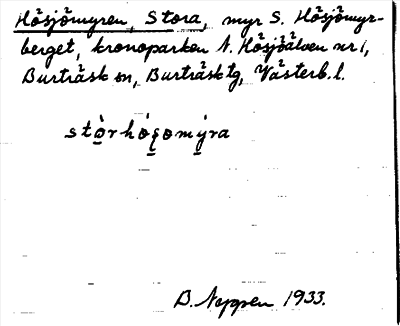 Hösjömyren, Stora, myr S. Hösjömyr-
berget, kronoparken N. Hösjöälven nr 1,
Burträsk sn, Burträsk tg, Västerb. l.
B. Neppen 1933.